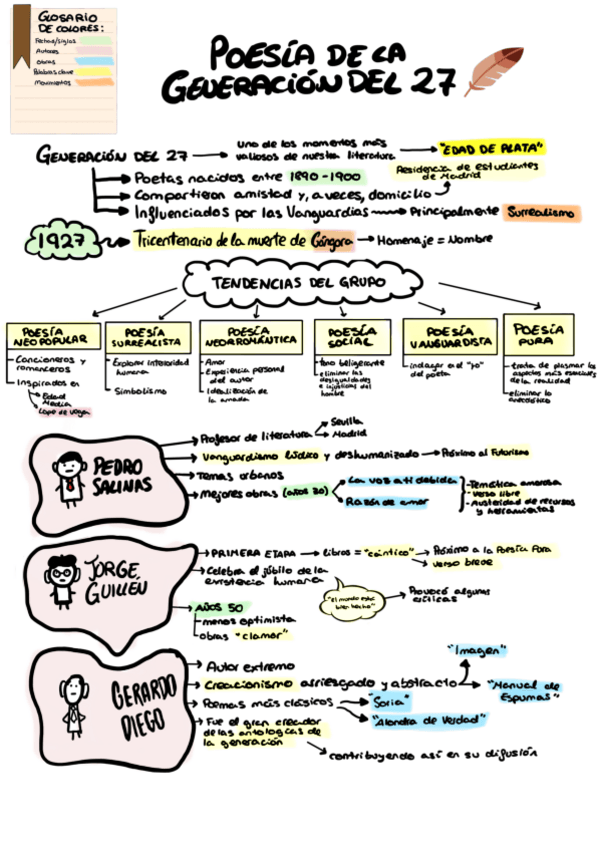 GLOSARIO
DE COLORES:
Fechas/siglos
Autores
Obras
Palabras clave
Movimientos
POESÍA DE LA
GENERACIÓN DEL 27
GENERACIÓN DEL 27
uno de los momentos más
valiosos de nuestra literatura
"EDAD DE PLATA"
Poetas nacidos entre 1890-1900
Residencia de estudiantes
de Madrid
Compartieron amistad y, a veces, domicilio
Influenciados por las Vanguardias
Principalmente Surrealismo
1927
Tricentenario de la muerte de Góngora
Homenaje = Nombre
TENDENCIAS DEL GRUPO
POESÍA
NEOPOPULAR
- Cancioneros y
romanceros
- Inspirados en
Edad
Media
Lope de Vega
POESÍA
SURREALISTA
- Explorar interioridad
humana
- Simbolismo
POESÍA
NEORROMÁNTICA
- Amor
- Experiencia personal
del autor
- Idealización de
la amada
POESÍA
SOCIAL
- tono beligerante
- eliminar las
desigualdades
e injusticias del
hombre
POESÍA
VANGUARDISTA
- indagar en el "yo"
del poeta
POESÍA
PURA
- trata de plasmar los
aspectos más esenciales
de la realidad
- eliminar lo
anecdótico
PEDRO
SALINAS
Profesor de literatura
Sevilla
Madrid
Vanguardismo lúdico y deshumanizado
Próximo al Futurismo
Temas urbanos
Mejores obras (años 30)
La voz a ti debida
Razón de amor
- Temática amorosa
- Verso libre
- Austeridad de recursos
y herramientas
JORGE
GUILLEN
PRIMERA ETAPA
libros = "cántico"
Próximo a la Poesía Pura
verso breve
Celebra el júbilo de la
existencia humana
"el mundo está
bien hecho"
Provocó algunas
críticas
AÑOS 50
menos optimista
obras "clamor"
GERARDO
DIEGO
Autor extremo
Creacionismo arriesgado y abstracto
"Imagen"
"Manual de
Espumas"
Poemas más clásicos
"Soria"
"Alondra de Verdad"
Fue el gran creador
de las antologías de
la generación
contribuyendo así en su difusión